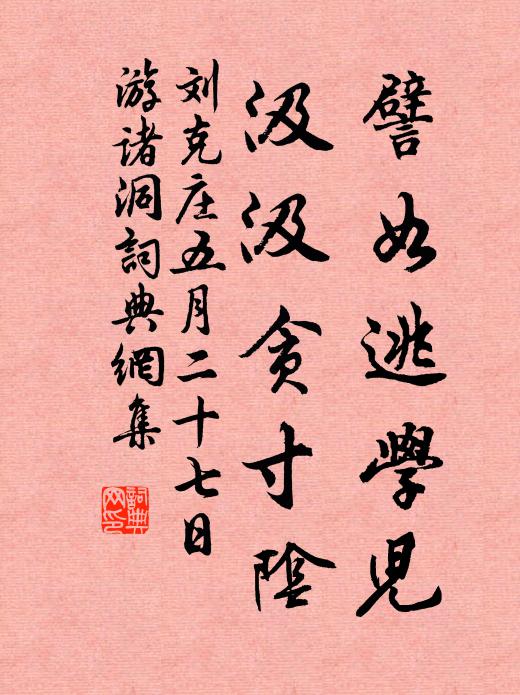 譬如逃學兒
汲汲貪寸陰
刘克庄五月二十七日
游诸洞詞典網集
詞典
网印